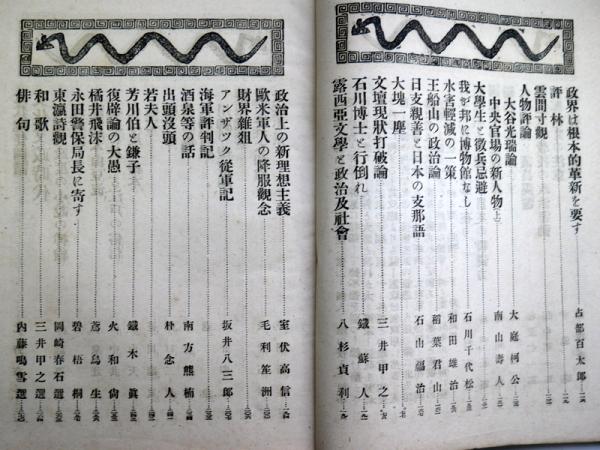 政界は根本的革新を要す 占部百太郎
評林
雲間寸觀
人物評論
大谷光瑞論 大庭柯公
中央官場の新人物(上) 南山壽人
大學生と徵兵忌避
我が邦に博物館なし 石川千代松
水害輕減の一策 和田雄治
王船山の政治論 稻葉君山
日支親善と日本の支那語 石山福治
大塊一塵
文壇現狀打破論 三井甲之
石川博士と行倒れ 鐵蘇人
露西亞文學と政治及社會 八杉貞利
政治上の新理想主義 室伏高信
歐米軍人の降服觀念 毛利笙洲
財界雜俎
アンザック從軍記 坂井八三郎
海軍評判記
酒泉等の話 南方熊楠
出頭沒頭 朴念人
若夫人
芳川伯と鎌子 鐵木眞
復辟論の大愚 火和尙
橘井飛沫 鳶鳥生
永田警保局長に寄す 碧梧桐
東瀛詩觀 岡崎春石選
和歌 三井甲之選
俳句 內藤鳴雪選